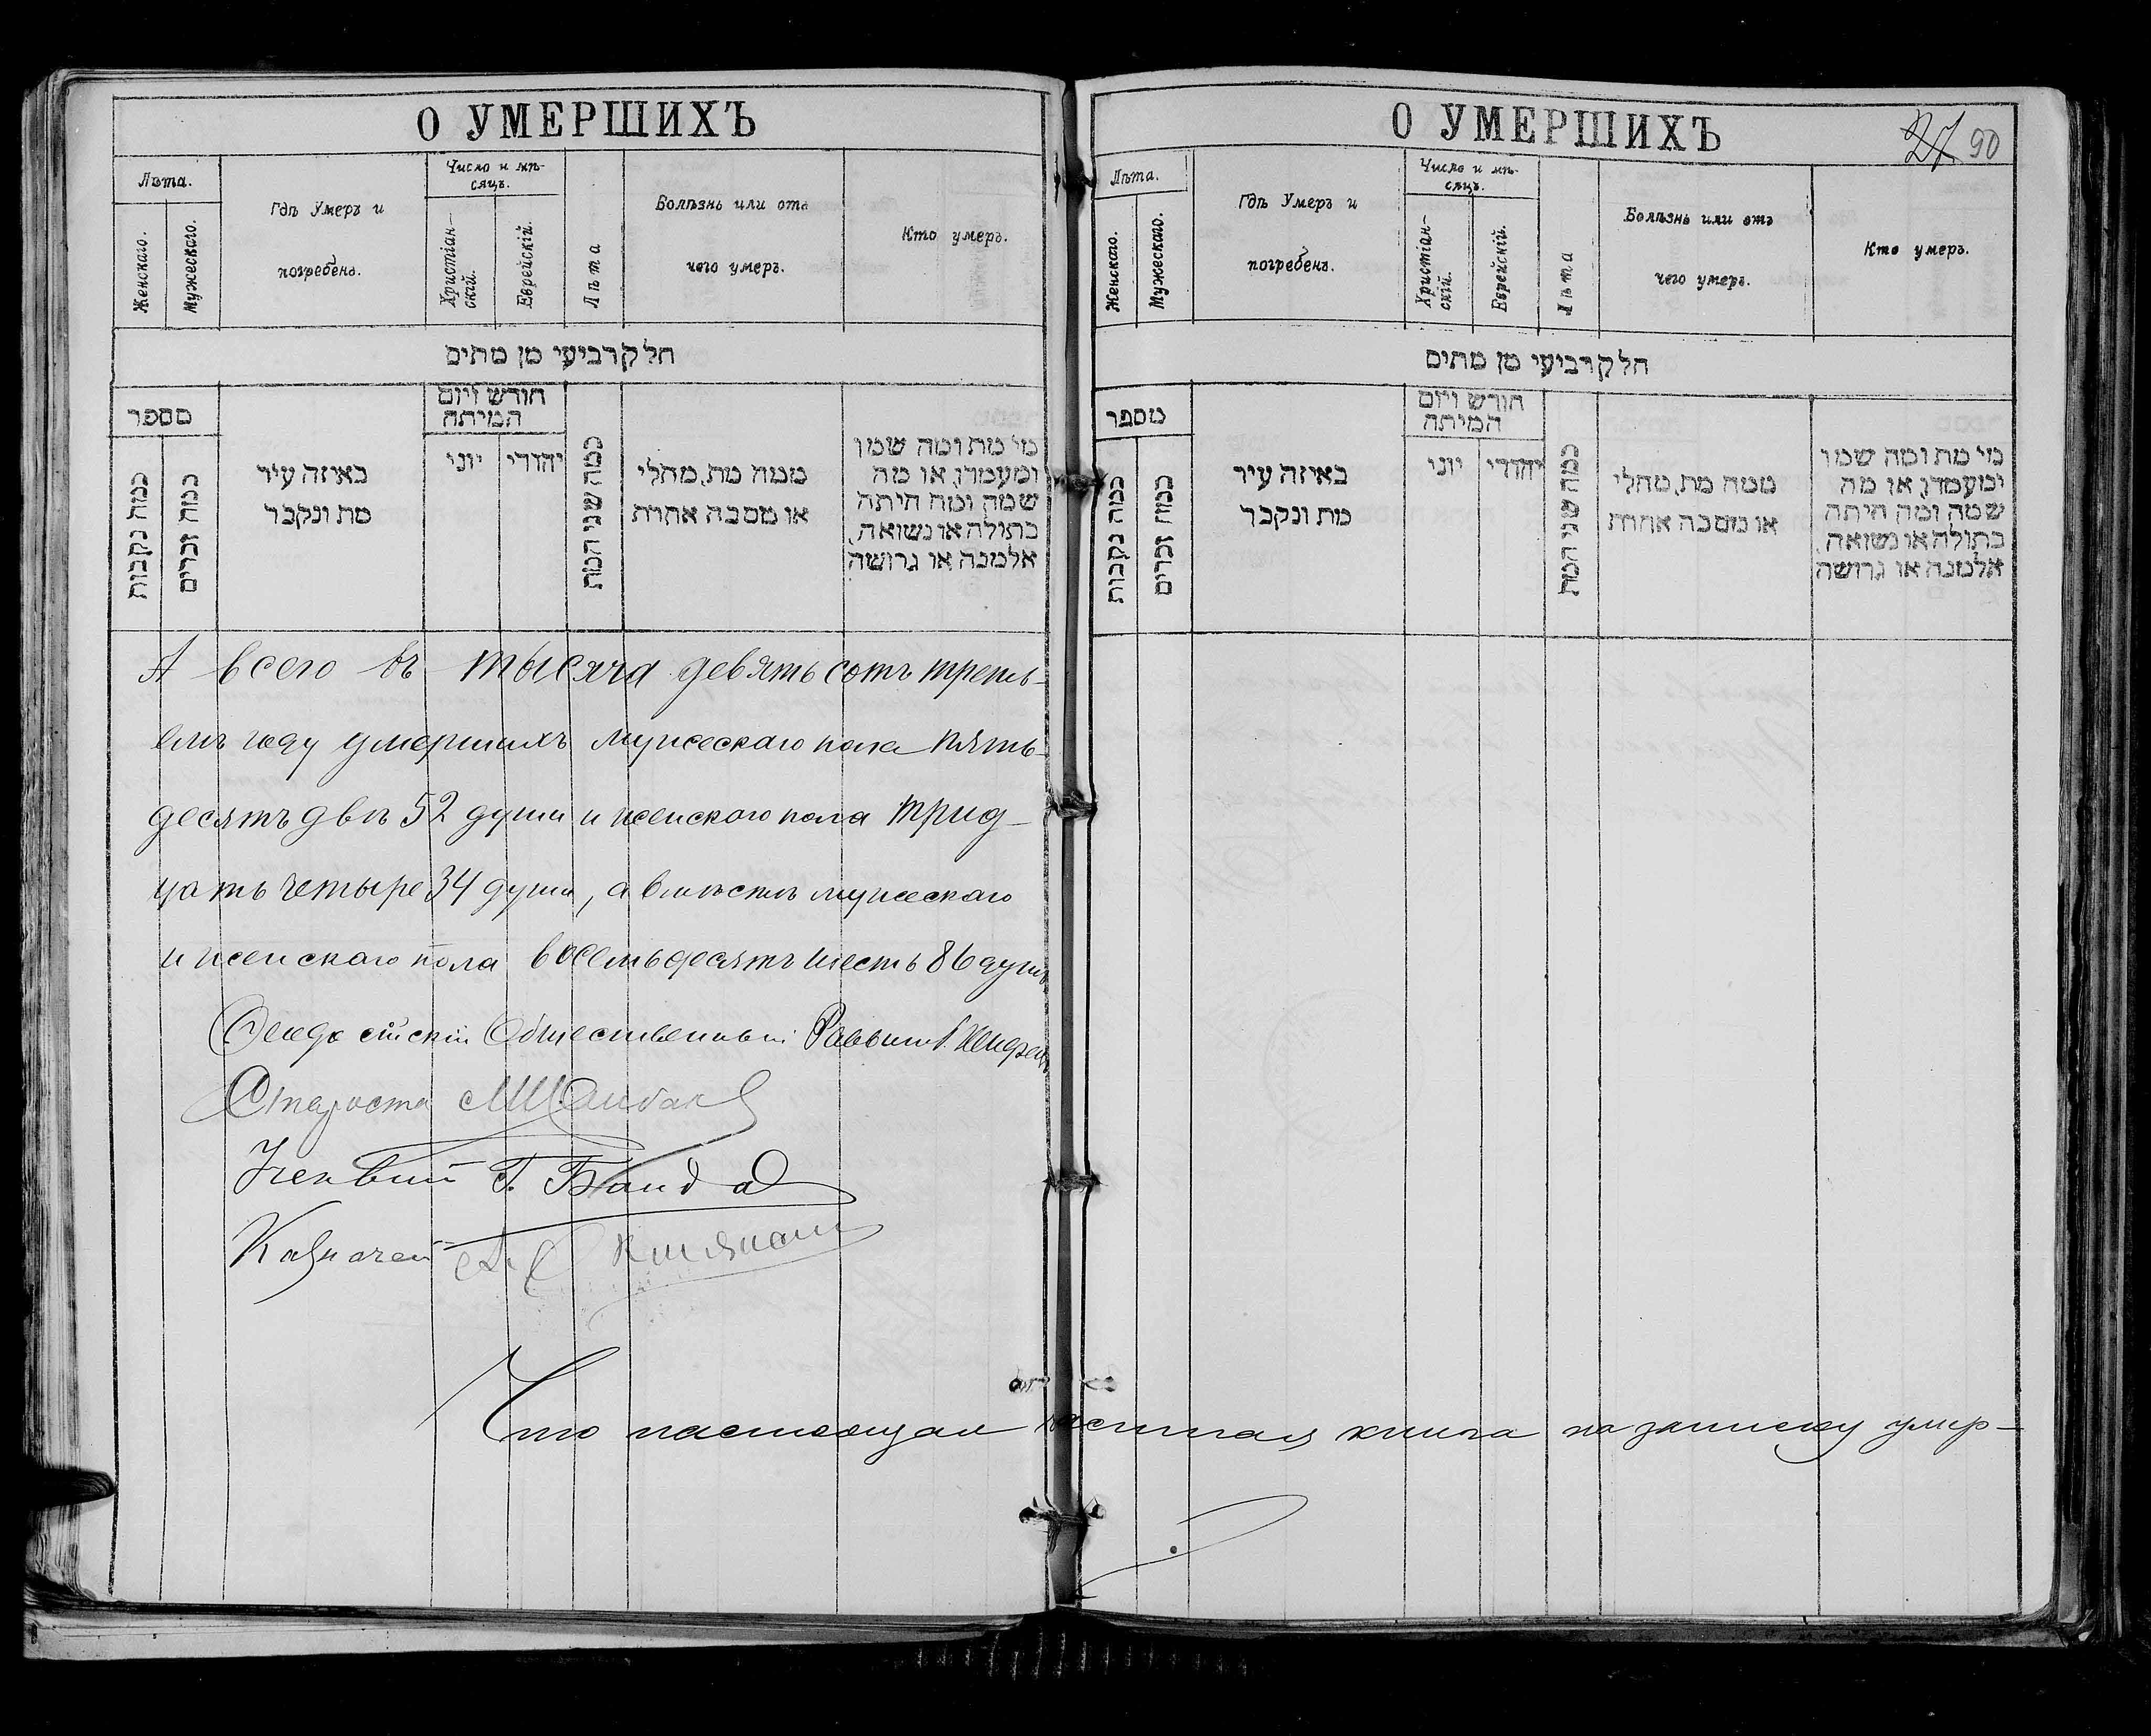 О УМЕРШИХЪ
Лѣта.
Женскаго.
Мужескаго.
Гдѣ Умеръ и
погребенъ.
Число и мѣ-
сяцъ.
Христіан-
скій.
Еврейскій.
Лѣта
Болѣзнь или отъ
чего умеръ.
Кто умеръ.
חלק רביעי מן מתים
מספר
כמה נקבות
כמה זכרים
באיזה עיר
מת ונקבר
חודש ויום
המיתה
יוני
יהודי
כמה שני המת
ממה מת, מחלי
או מסבה אחרת
מי מת ומה שמו
ומעמדו, או מה
שמה ומה היתה
בתולה או נשואה,
אלמנה או גרושה
А всего въ тысяча девятьсотъ треть-
емъ году умершихъ мужескаго пола пять-
десятъ двѣ 52 души и женскаго пола трид-
цать четыре 34 души, а вмѣстѣ мужескаго
и женскаго пола восемьдесятъ шесть 86 душъ
Ѳеодосійскій Общественный Раввинъ
Староста
Ученый Г.
Казначей
О УМЕРШИХЪ
27 90
Лѣта.
Женскаго.
Мужескаго.
Гдѣ Умеръ и
погребенъ.
Число и мѣ-
сяцъ.
Христіан-
скій.
Еврейскій.
Лѣта
Болѣзнь или отъ
чего умеръ.
Кто умеръ.
חלק רביעי מן מתים
מספר
כמה נקבות
כמה זכרים
באיזה עיר
מת ונקבר
חודש ויום
המיתה
יוני
יהודי
כמה שני המת
ממה מת, מחלי
או מסבה אחרת
מי מת ומה שמו
ומעמדו, או מה
שמה ומה היתה
בתולה או נשואה,
אלמנה או גרושה
Что настоящая частная книга на записку умер-